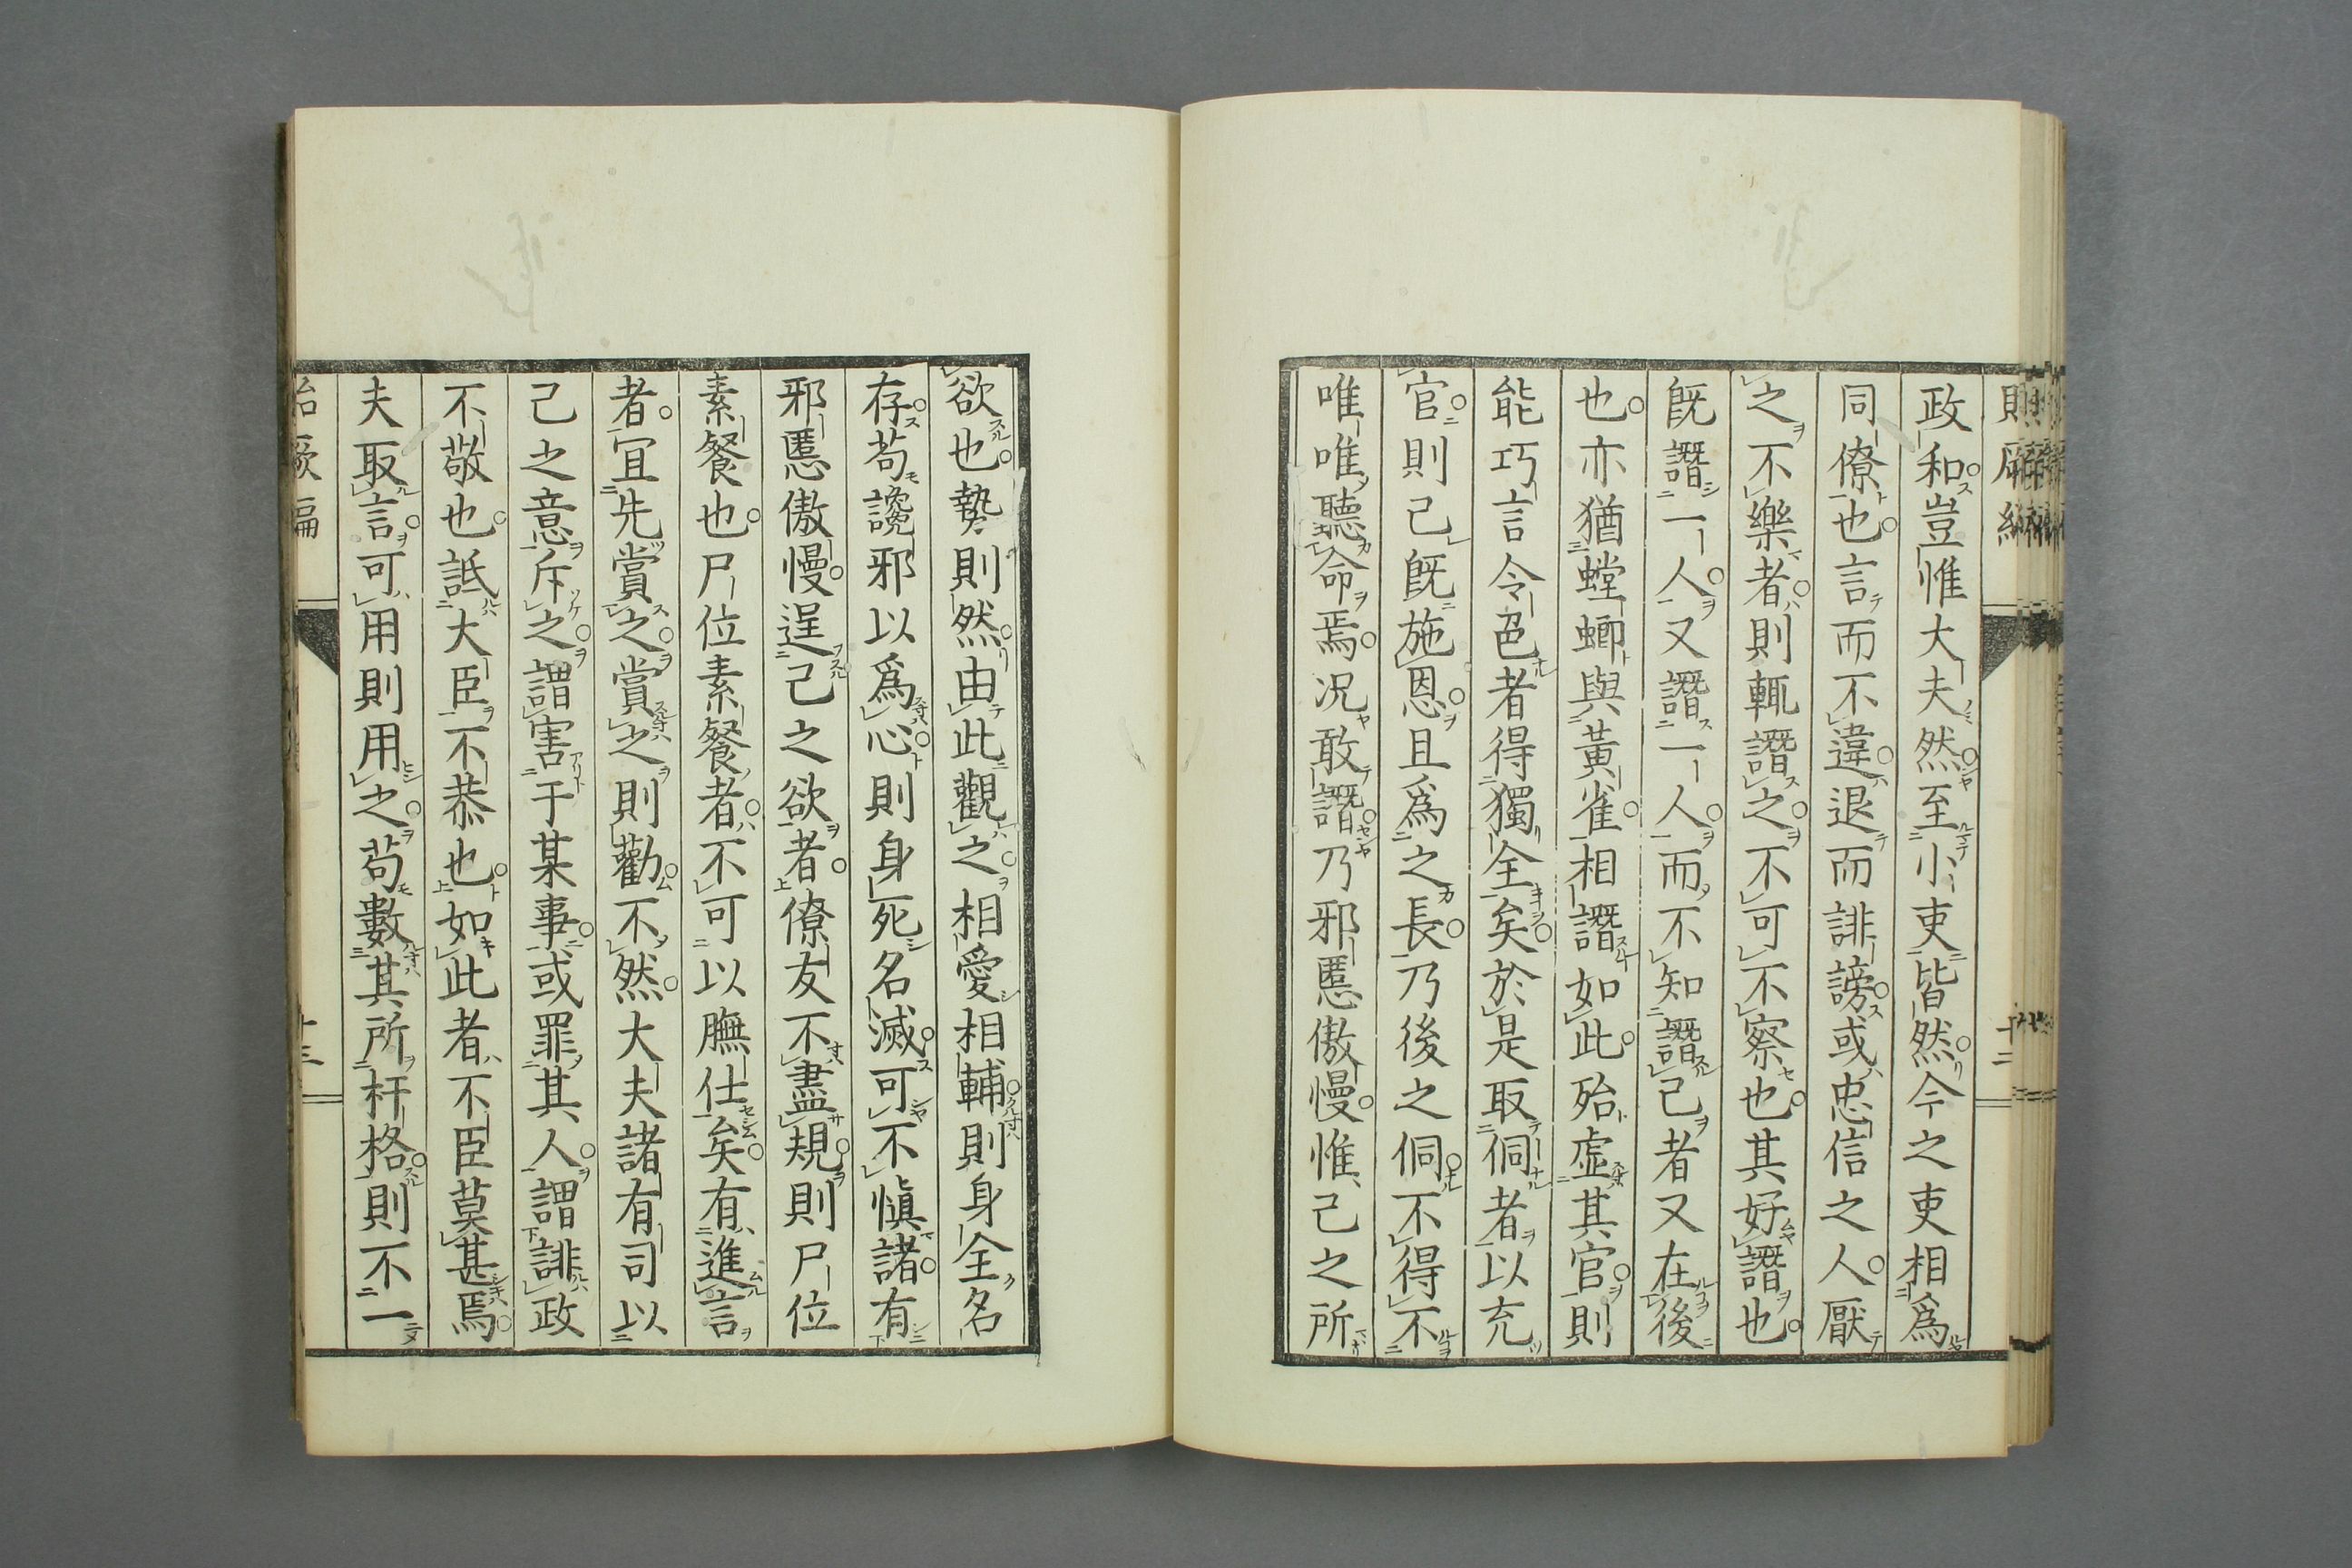 政和豈惟大夫然至小吏皆然今之吏相爲
同僚也言而不違退而誹謗或忠信之人厭
之不樂者則輒譖之不可不察也其好譖也
既譖一人又譖一人而不知譖己者又在後
也亦猶螳螂與黃雀相譖如此殆虛其官則
能巧言令色者得獨全矣於是取侗者以充
官則己既施恩且爲之長乃後之侗不得不
唯唯聽命焉況敢譖乃邪慝傲慢惟己之所
欲也勢則然由此觀之相愛相輔則身全名
存苟讒邪以爲心則身死名滅可不愼諸有
邪慝傲慢逞己之欲者僚友不盡規則尸位
素餐也尸位素餐者不可以膴仕矣有進言
者宜先賞之賞之則勸不然大夫諸有司以
己之意斥之謂害于某事或罪其人謂誹政
不敬也詆大臣不恭也如此者不臣莫甚焉
夫取言可用則用之苟數其所扞格則不一
十三